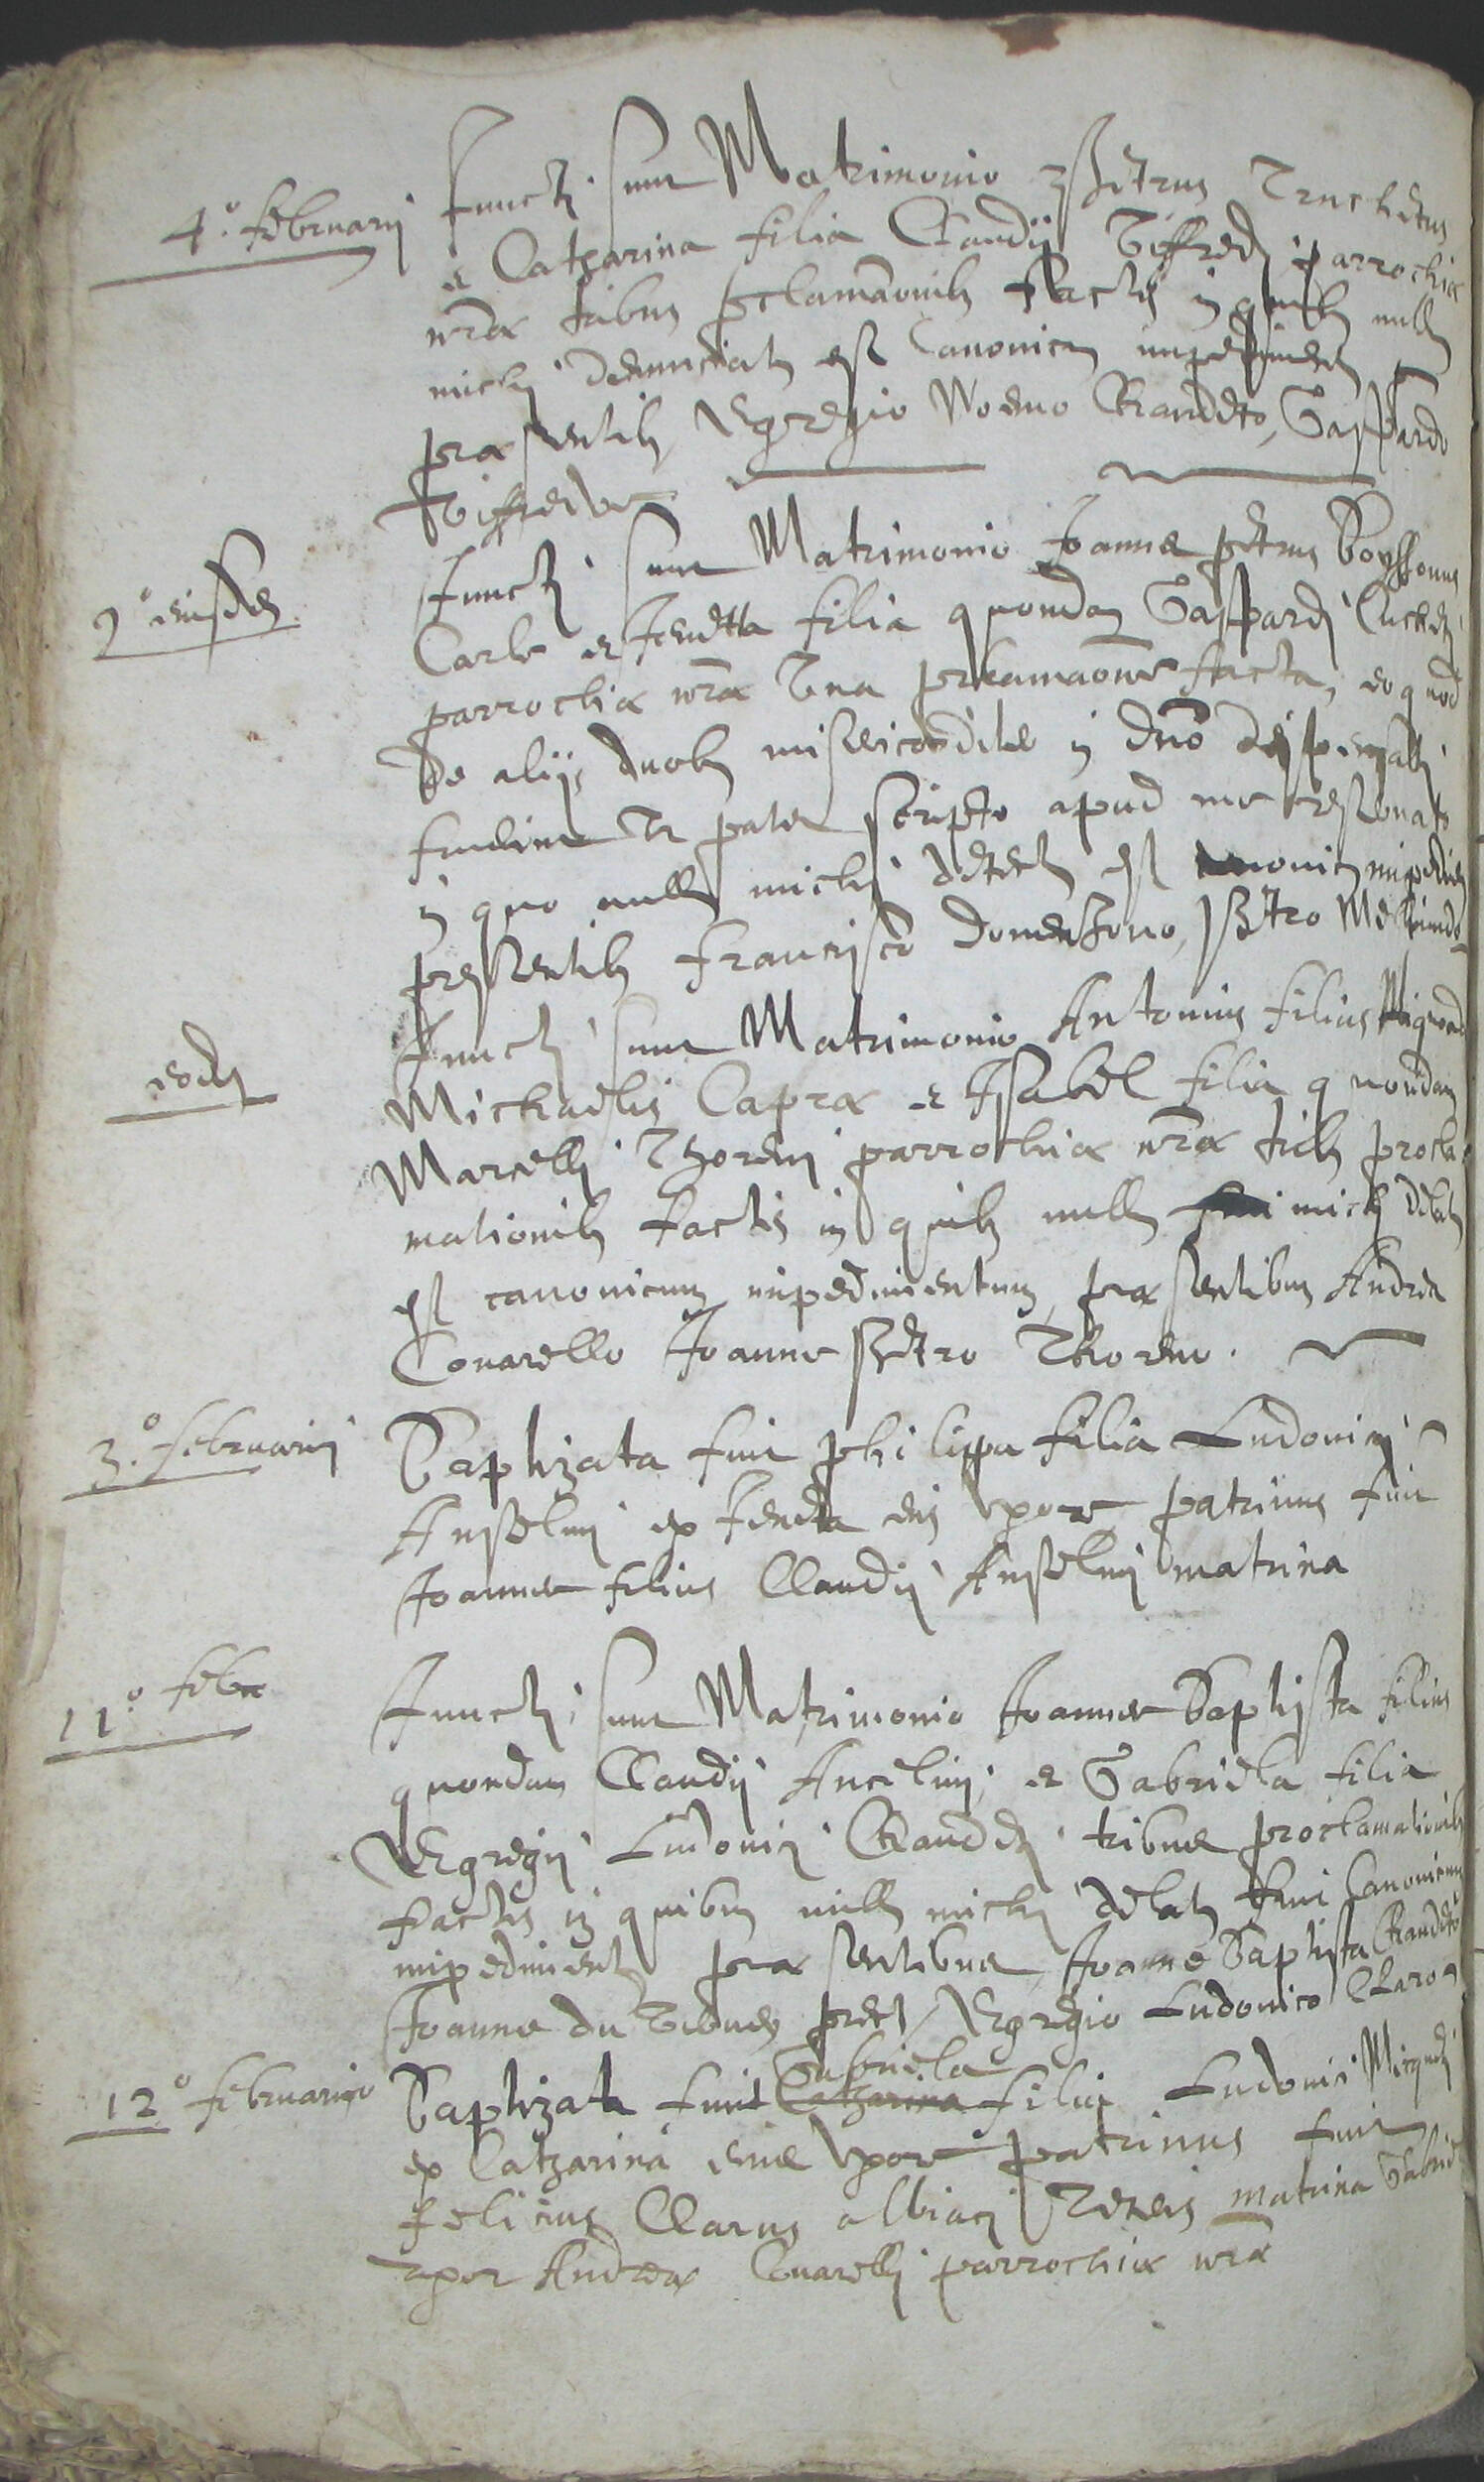 4.° februarii Juncti sunt Matrimonio petrus Truchetus
et Catharina filia Claudii Giffredi parrochiæ
nræ tribus pclamaonib factis in quib null
michi denunciat est Canonicu impedimet
præsentib Egregio Noemo Claudeto, Gaspardo
Giffredo
2° eiusde Juncti sunt Matrimonio Joannes petrus Boyssonus
Carlo et Jeudtta filia quondam Gaspardi
parrochiæ nræ Una prclamaone facta, eo quod
de aliis duob misericordite in dno dispensati
fuerunt Ut patet scripto apud me reservato
in quo null michi detect est canonicu impedimen
presentib Francisco Domenzono, petro
eode Juncti sunt Matrimonio Antonius filius
Michaelis Capræ et Isabel filia quondam
Marcelli Thoreni parrochiæ nræ trib procla
mationib factis in quib null michi delat
est canonicum impedimentum præsentibus Andrea
Conarello Joanne petro Thoreno.
3.° februarii Baptizata fuit philippa filia Ludovici
Anselmi ex Jeudta eius Uxore patrinus fuit
Joannes filius Claudii Anselmi matrina
11° febr Juncti sunt Matrimonio Joannes Baptista filius
quondam Claudii Ancelmi et Gabriela filia
Egregii Ludovici Claudeti tribus proclamationib
factis in quibus null michi delat fuit Canonicum
impediment præsentibus Joanne Baptista Claudeto
Joanne du pret Egregio Ludovico Claro
12° februarii Baptizata fuit Catharina Gabriela filia Ludovici
ex Catharina eius Uxore patrinus fuit
felicius Clarus matrina Gabriela
uxor Andreæ Conarelli parrochiæ nræ